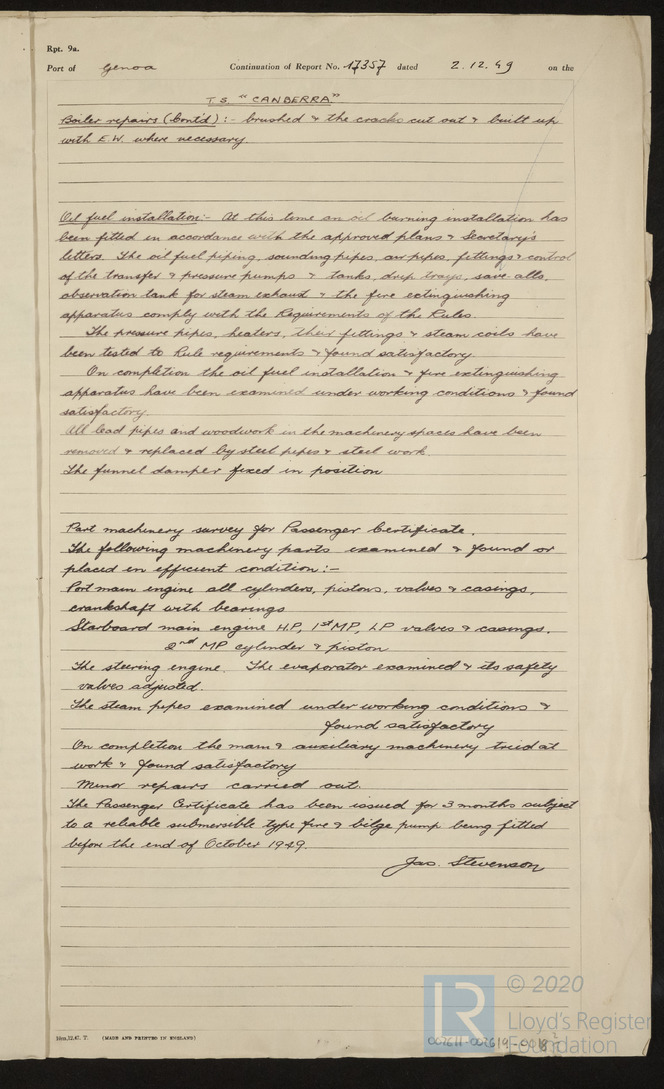 Rpt. 9a.
Port of Genoa Continuation of Report No. 17357 dated 2.12.49 on the
T.S. "CANBERRA"
Boiler repairs (Cont'd) :- brushed & the cracks cut out & built up
with E.W. where necessary.
Oil fuel installation:- At this time an oil burning installation has
been fitted in accordance with the approved plans & Secretary's
letters. The oil fuel piping, sounding pipes, air pipes, fittings & control
of the transfer & pressure pumps & tanks, drip trays, save-alls,
observation tank for steam exhaust & the fire extinguishing
apparatus comply with the Requirements of the Rules.
The pressure pipes, heaters, their fittings & steam coils have
been tested to Rule requirements & found satisfactory.
On completion the oil fuel installation & fire extinguishing
apparatus have been examined under working conditions & found
satisfactory.
All lead pipes and woodwork in the machinery spaces have been
removed & replaced by steel pipes & steel work
The funnel damper fixed in position
Part machinery survey for Passenger Certificate.
The following machinery parts examined & found or
placed in efficient condition :-
Port main engine all cylinders, pistons, valves & casings,
crankshaft with bearings
Starboard main engine H.P, 1st MP, LP valves & casings.
2nd MP cylinder & piston
The steering engine. The evaporator examined & its safety
valves adjusted.
The steam pipes examined under working conditions &
found satisfactory
On completion the main & auxiliary machinery tried at
work & found satisfactory
Minor repairs carried out.
The Passenger Certificate has been issued for 3 months subject
to a reliable submersible type fire & bilge pump being fitted
before the end of October 1949.
Jas. Stevenson
10m.12.47. T. (MADE AND PRINTED IN ENGLAND)
LR © 2020
Lloyd's Register
Foundation